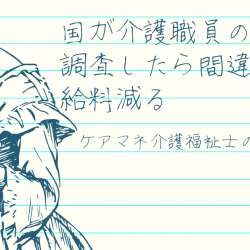 国が介護職員の
調査したら間違
給料減る
ケアマネ介護福祉士の